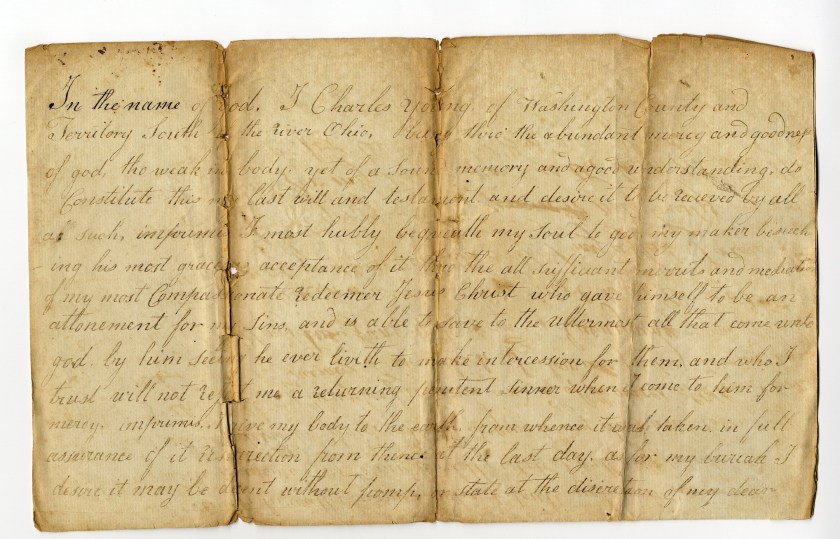 In the name of God. I Charles Young of Washington County and
Territory South of the river Ohio, being thro the abundant mercy and goodness
of god, tho weak in body yet of a sound memory and a good understanding, do
Constitute this my last will and testament and desire it to be recieved by all
as such, imprimis I most hubly bequeath my Soul to god my maker beseech
ing his most gracious acceptance of it thro the all sufficiant merits and mediation
of my most Compassionate redeemer Jesus Christ who gave himself to be an
attonement for my Sins, and is able to save to the uttermost all that come unto
god by him seeing he ever liveth to make intercession for them, and who I
trust will not reject me a returning penitent sinner when I come to him for
mercy. imprimis, I give my body to the earth from whence it was taken. in full
assurance of it resurrection from thence at the last day. as for my burial I
desire it may be decent without pomp, or state at the discretion of my dear